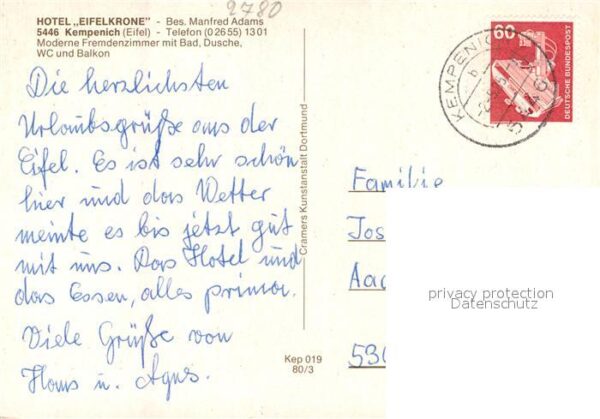 2780
HOTEL „EIFELKRONE" - Bes. Manfred Adams
5446 Kempenich (Eifel) - Telefon (0 26 55) 13 01
Moderne Fremdenzimmer mit Bad, Dusche,
WC und Balkon
Die herzlichsten
Urlaubsgrüße aus der
Eifel. Es ist sehr schön
hier und das Wetter
meinte es bis jetzt gut
mit uns. Das Hotel und
das Essen, alles prima.
Viele Grüße von
Hans u. Agnes.
Cramers Kunstanstalt Dortmund
Kep 019
80/3
60
DEUTSCHE BUNDESPOST
KEMPENICH
5446
Familie
Jos
Aac
530
privacy protection
Datenschutz